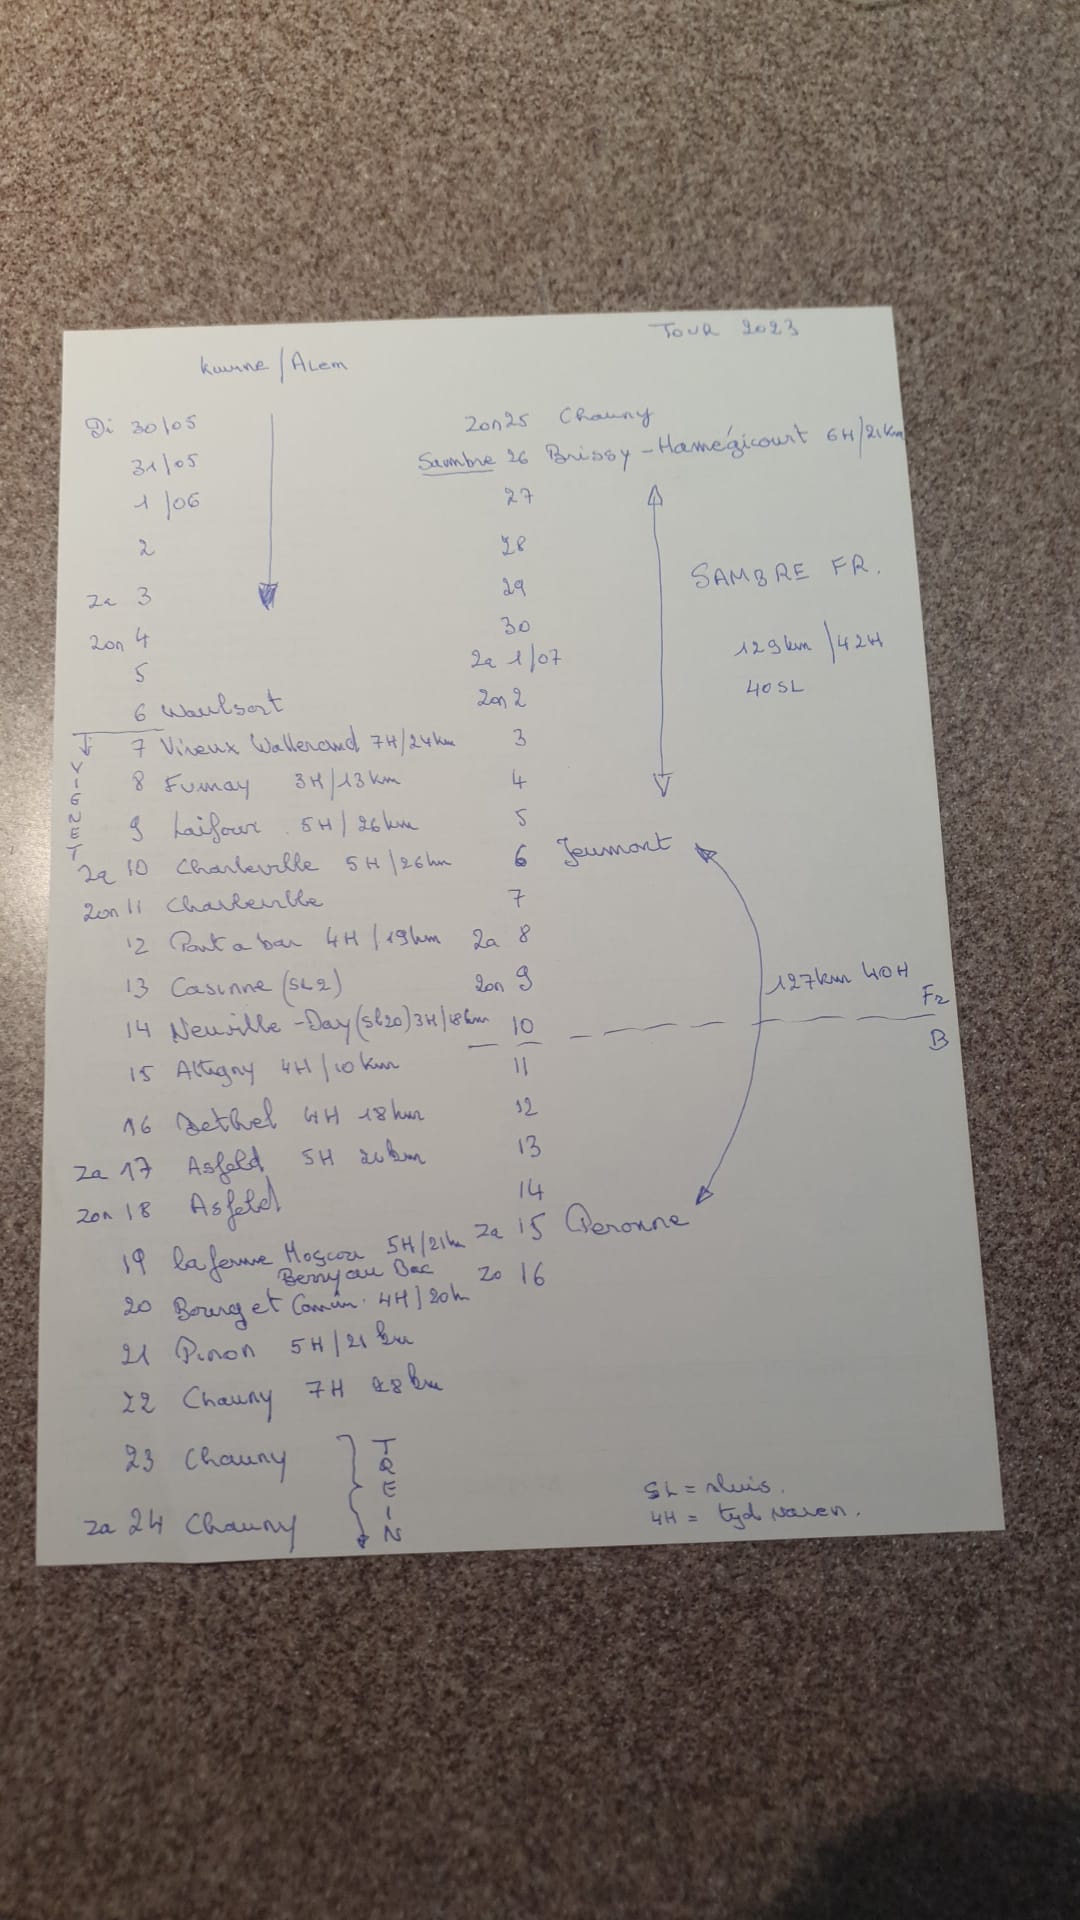 TOUR 2023
Kuurne / ALEM
Di 30/05
31/05
1/06
2
Za 3
Zon 4
5
6 Waulsort
VIGNET
7 Vireux Wallerand 7H/24km
8 Fumay 3H/13km
9 Laifour 5H/26km
Za 10 Charleville 5H/26km
Zon 11 Charleville
12 Pont a bar 4H/19km
13 Cassinne (SL2)
14 Neuville-Day (SL20) 3H/18km
15 Attigny 4H/10km
16 Rethel 4H 18km
Za 17 Asfeld 5H 20km
Zon 18 Asfeld
19 la ferme Moscou 5H/21km
Berry au Bac
20 Bourg et Comin 4H/20km
21 Pinon 5H/21km
22 Chauny 7H 28km
23 Chauny
Za 24 Chauny
TREIN
Zon 25 Chauny
Sambre 26 Brissy-Hamégicourt 6H/21km
27
28
29
30
Za 1/07
Zon 2
3
4
5
6 Jeumont
7
Za 8
Zon 9
10
11
12
13
14
Za 15 Peronne
Zo 16
SAMBRE FR.
129km / 42H
40SL
127km 40H
Fr
B
SL = sluis.
4H = tyd varen.